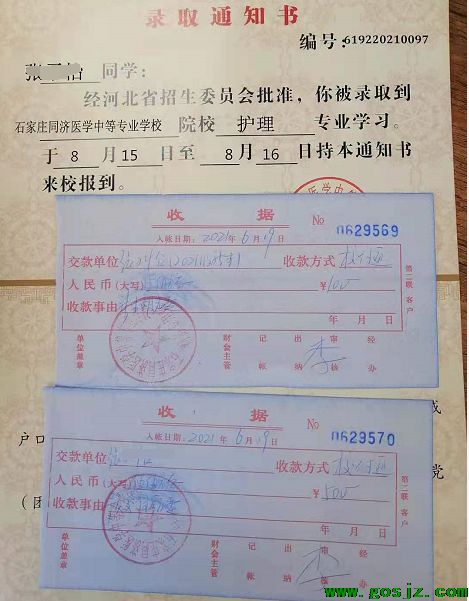 录取通知书
编号:619220210097
同学:
经河北省招生委员会批准，你被录取到
石家庄同济医学中等专业学校 院校 护理 专业学习。
于 8 月 15 日至 8 月 16 日持本通知书
来校报到。
收据 No 0629569
入帐日期: 2021 年 6 月 19 日
交款单位 收款方式
人民币(大写) ¥100
收款事由
年 月 日
单位盖章 财会主管 记帐 出纳 审核 经办
第二联 客户
收据 No 0629570
入帐日期: 2021 年 6 月 19 日
交款单位 收款方式
人民币(大写) ¥500
收款事由
年 月 日
单位盖章 财会主管 记帐 出纳 审核 经办
第二联 客户
户口
党
(团
www.gosjz.com